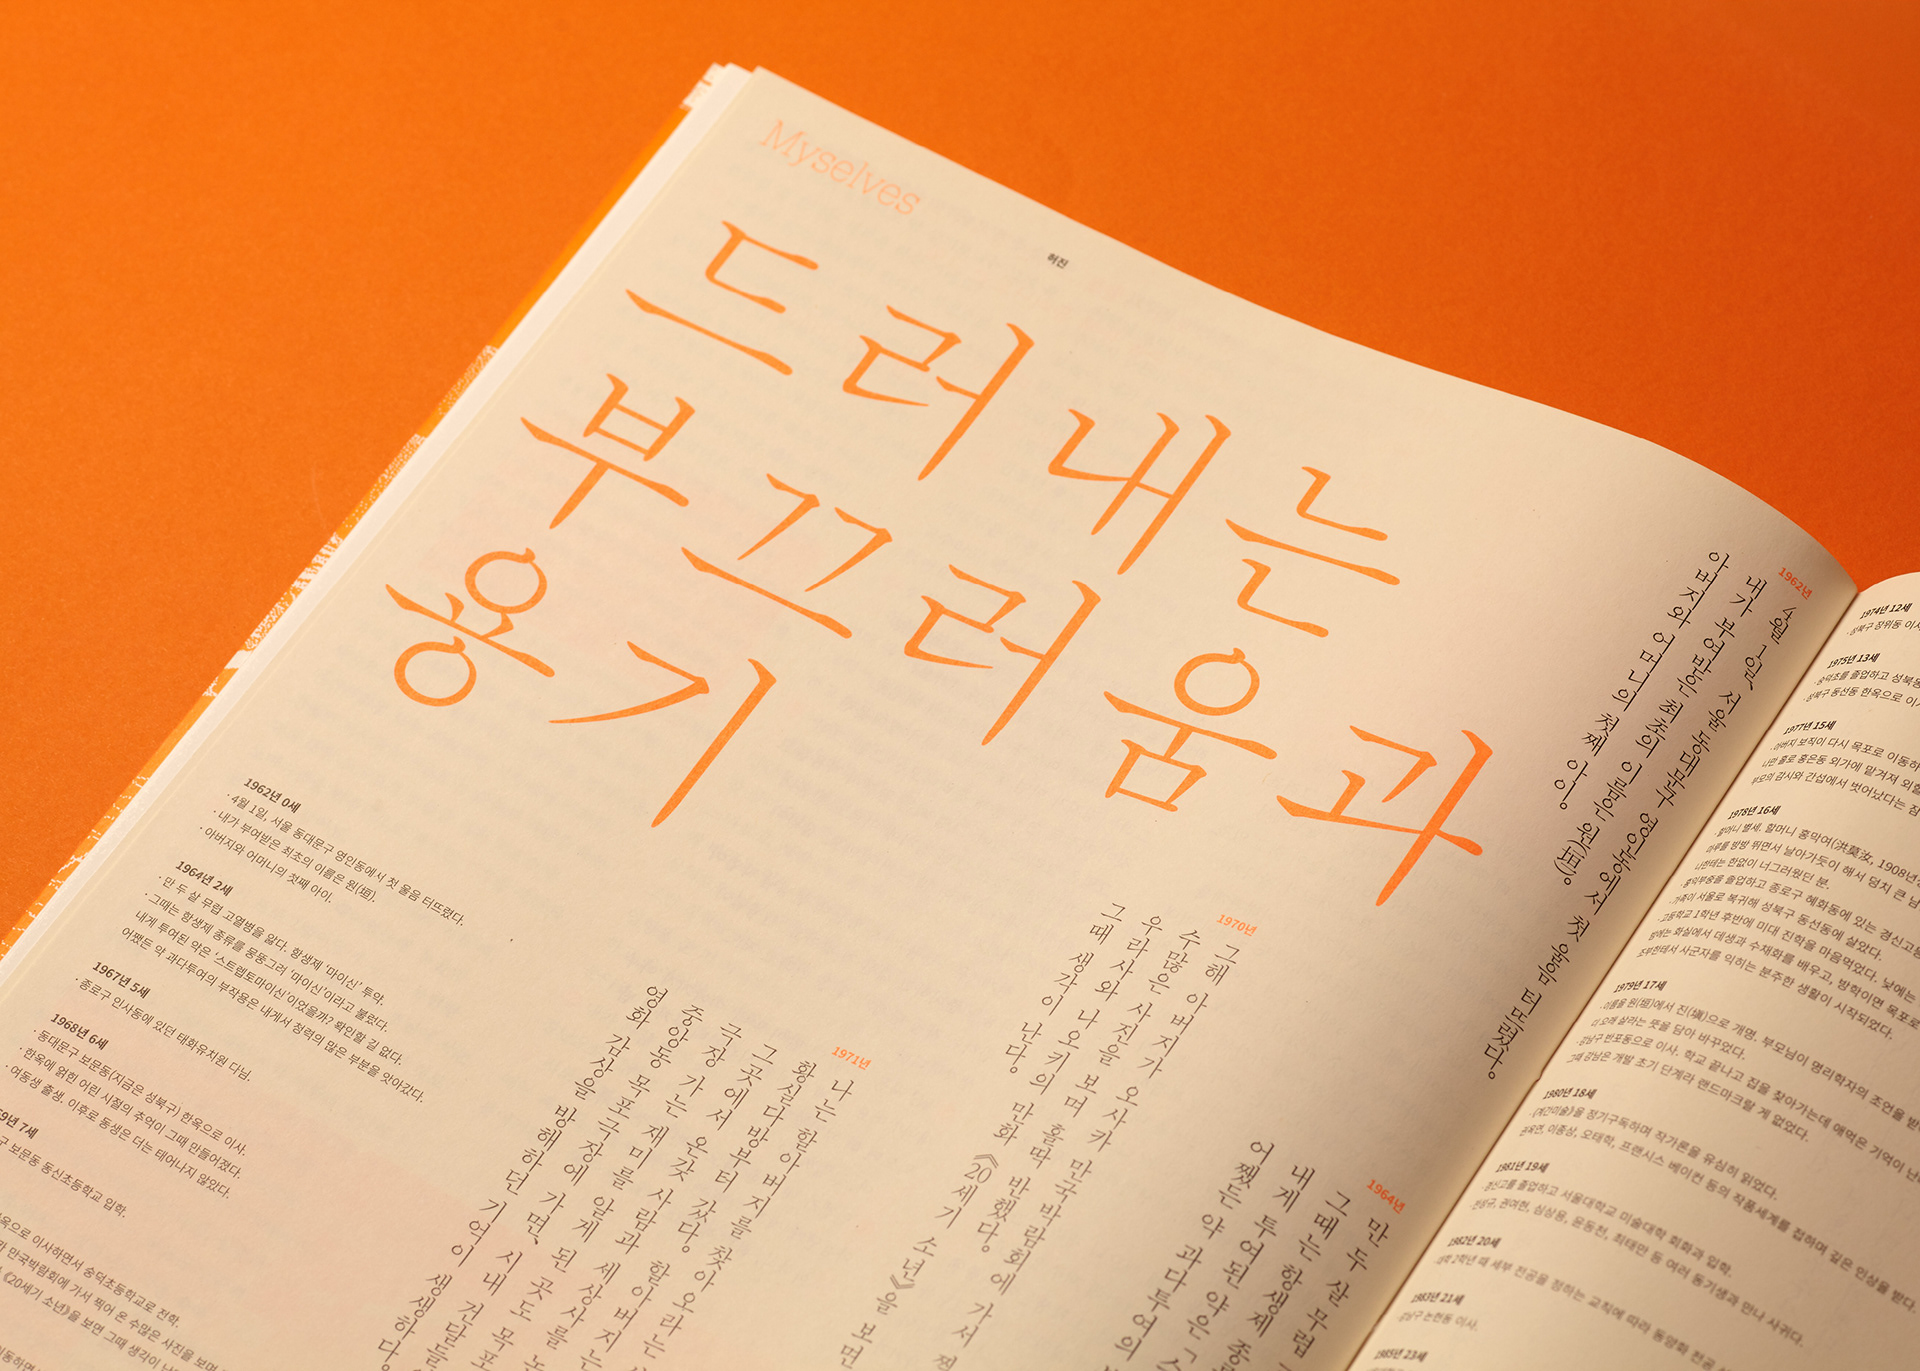 Myselves
허진
드러내는
부끄러움과
용기
1962년
4월 1일, 서울 동대문구 영인동에서 첫 울음 터뜨렸다.
내가 부여받은 최초의 이름은 원(垣).
아버지와 어머니의 첫째 아이.
1964년
만 두 살 무렵
그때는 항생제 종
내게 투여된 약은 '스
어쨌든 약 과다투여의
1970년
그해 아버지가 오사카 만국박람회에 가서 찍
수많은 사진을 보며 홀딱 반했다.
우라사와 나오키의 만화 《20세기 소년》을 보면
그때 생각이 난다.
1971년
나는 할아버지를 찾아오라는
황실다방부터 갔다. 할아버지는
그곳에서 온갖 사람과 세상사를 논
극장 가는 재미를 알게 된 곳도 목포
중앙동 목포극장에 가면, 시내 건달들
영화 감상을 방해하던 기억이 생생하다.
1962년 0세
· 4월 1일, 서울 동대문구 영인동에서 첫 울음 터뜨렸다.
· 내가 부여받은 최초의 이름은 원(垣).
· 아버지와 어머니의 첫째 아이.
1964년 2세
· 만 두 살 무렵 고열병을 앓다. 항생제 '마이신' 투약.
· 그때는 항생제 종류를 뭉뚱그려 '마이신'이라고 불렀다.
내게 투여된 약은 '스트렙토마이신'이었을까? 확인할 길 없다.
어쨌든 약 과다투여의 부작용은 내게서 청력의 많은 부분을 앗아갔다.
1967년 5세
· 종로구 인사동에 있던 태화유치원 다님.
1968년 6세
· 동대문구 보문동(지금은 성북구) 한옥으로 이사.
· 한옥에 얽힌 어린 시절의 추억이 그때 만들어졌다.
· 여동생 출생. 이후로 동생은 더는 태어나지 않았다.
69년 7세
구 보문동 동신초등학교 입학.
한옥으로 이사하면서 숭덕초등학교로 전학.
만국박람회에 가서 찍어 온 수많은 사진을 보며
《20세기 소년》을 보면 그때 생각이
1974년 12세
· 성북구 장위동 이사
1975년 13세
· 숭덕초를 졸업하고 성북동
· 성북구 동선동 한옥으로 이사
1977년 15세
· 아버지 보직이 다시 목포로 이동하
나만 홀로 홍은동 외가에 맡겨져 외할
부모의 감시와 간섭에서 벗어났다는 점
1978년 16세
· 할머니 별세. 할머니 홍막여(洪莫汝, 1908년생
마루를 방방 뛰면서 날아가듯이 해서 덩치 큰 남
나한테는 한없이 너그러웠던 분.
· 홍익부중을 졸업하고 종로구 혜화동에 있는 경신고등
· 가족이 서울로 복귀해 성북구 동선동에 살았다.
· 고등학교 1학년 후반에 미대 진학을 마음먹었다. 낮에는
밤에는 화실에서 데생과 수채화를 배우고, 방학이면 목포로
조부한테서 사군자를 익히는 분주한 생활이 시작되었다.
1979년 17세
· 이름을 원(垣)에서 진(塡)으로 개명. 부모님이 명리학자의 조언을 받
더 오래 살라는 뜻을 담아 바꾸었다.
· 강남구 반포동으로 이사. 학교 끝나고 집을 찾아가는데 애먹은 기억이 난
그때 강남은 개발 초기 단계라 랜드마크랄 게 없었다.
1980년 18세
· 《계간미술》을 정기구독하며 작가론을 유심히 읽었다.
권옥연, 이종상, 오태학, 프랜시스 베이컨 등의 작품세계를 접하며 깊은 인상을 받다.
1981년 19세
· 경신고를 졸업하고 서울대학교 미술대학 회화과 입학.
· 전성규, 권여현, 심상용, 윤동천, 최태만 등 여러 동기생과 만나 사귀다.
1982년 20세
· 대학 2학년 때 세부 전공을 정하는 교칙에 따라 동양화 전공
1983년 21세
· 강남구 논현동 이사.
1985년 23세